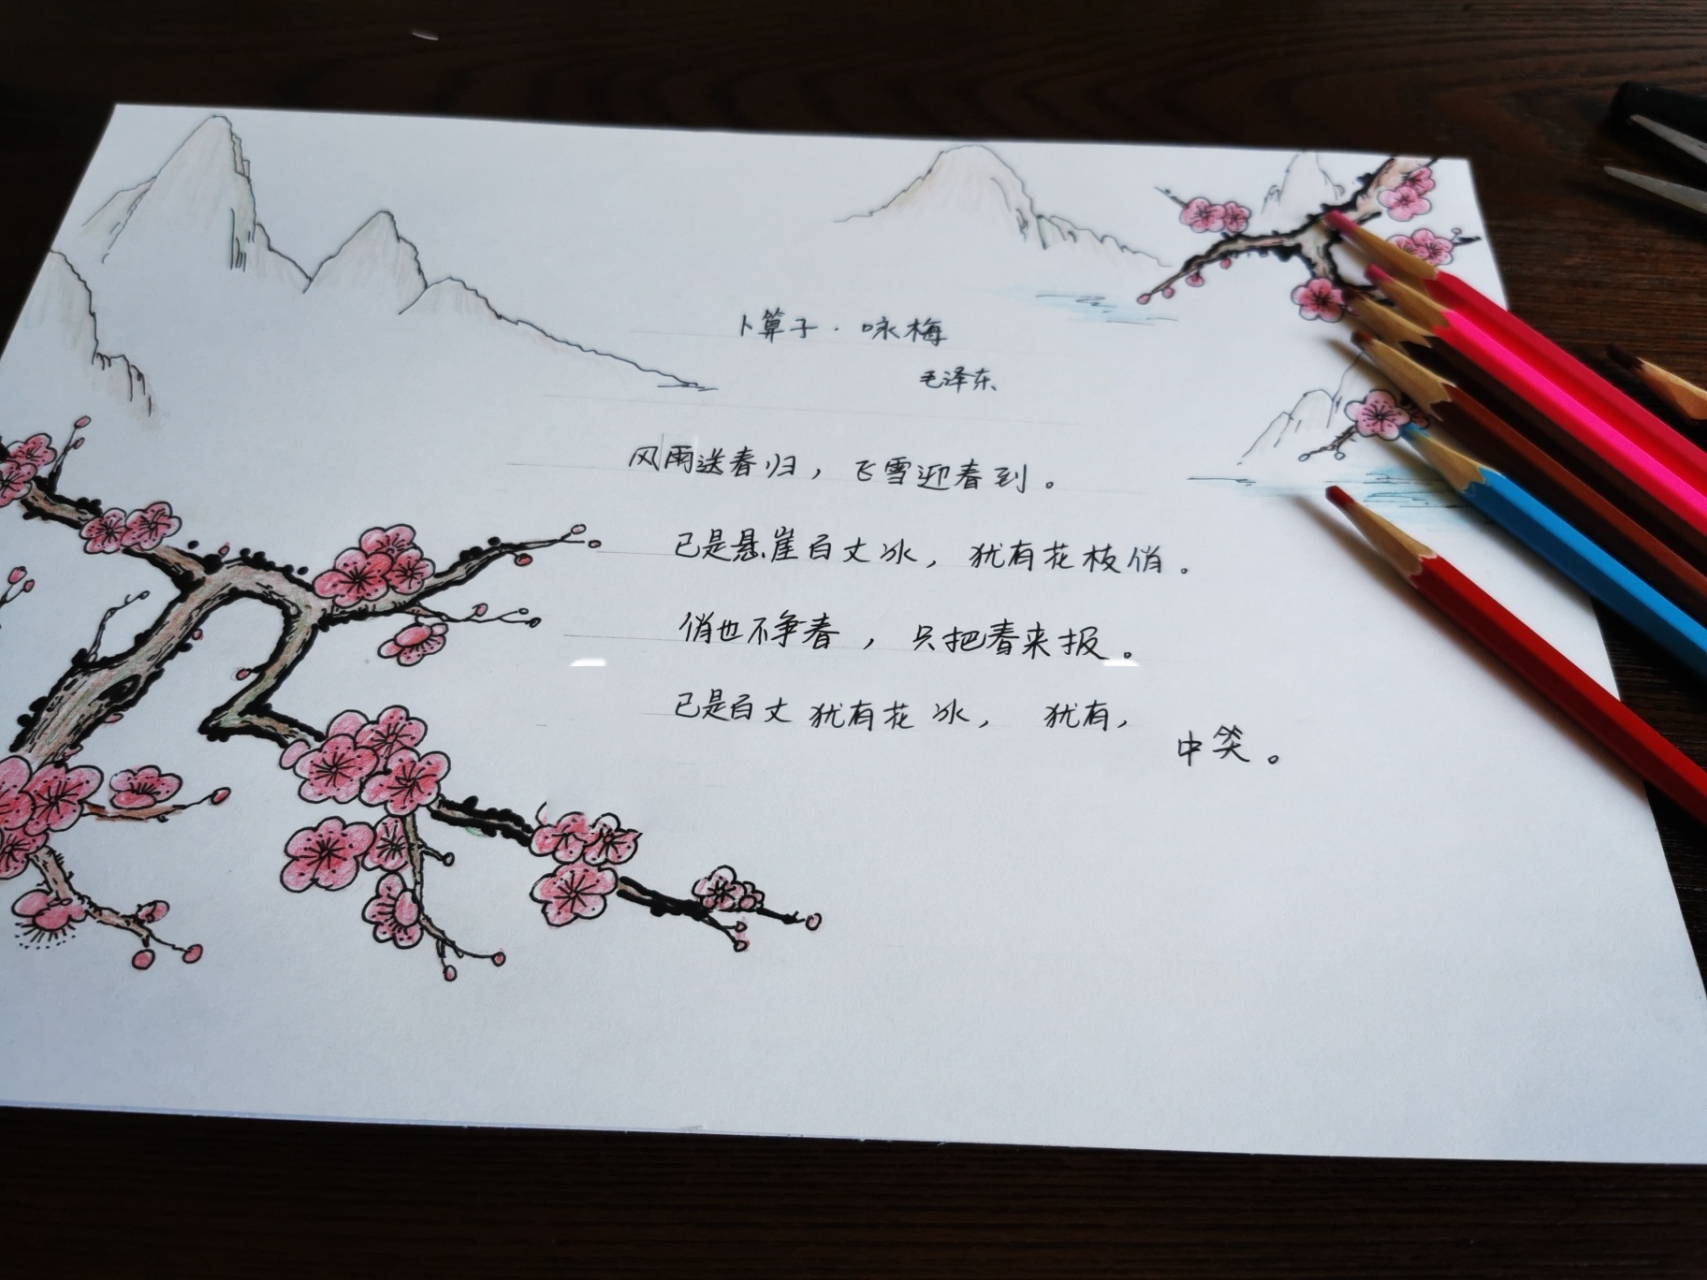 卜算子·咏梅
毛泽东
风雨送春归，飞雪迎春到。
已是悬崖百丈冰，犹有花枝俏。
俏也不争春，只把春来报。
已是百丈犹有花冰，犹有，
中笑。